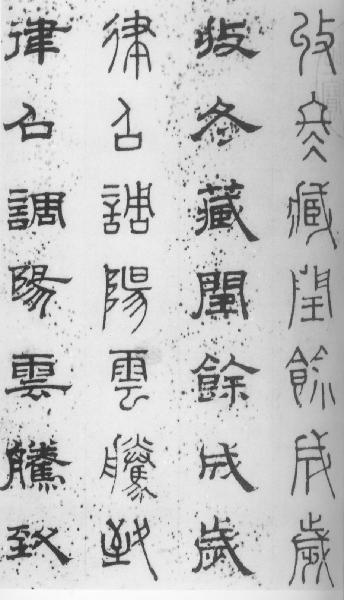 收冬臧閏餘成歲
收冬藏閏餘成歲
律召調陽雲騰致
律召調陽雲騰致